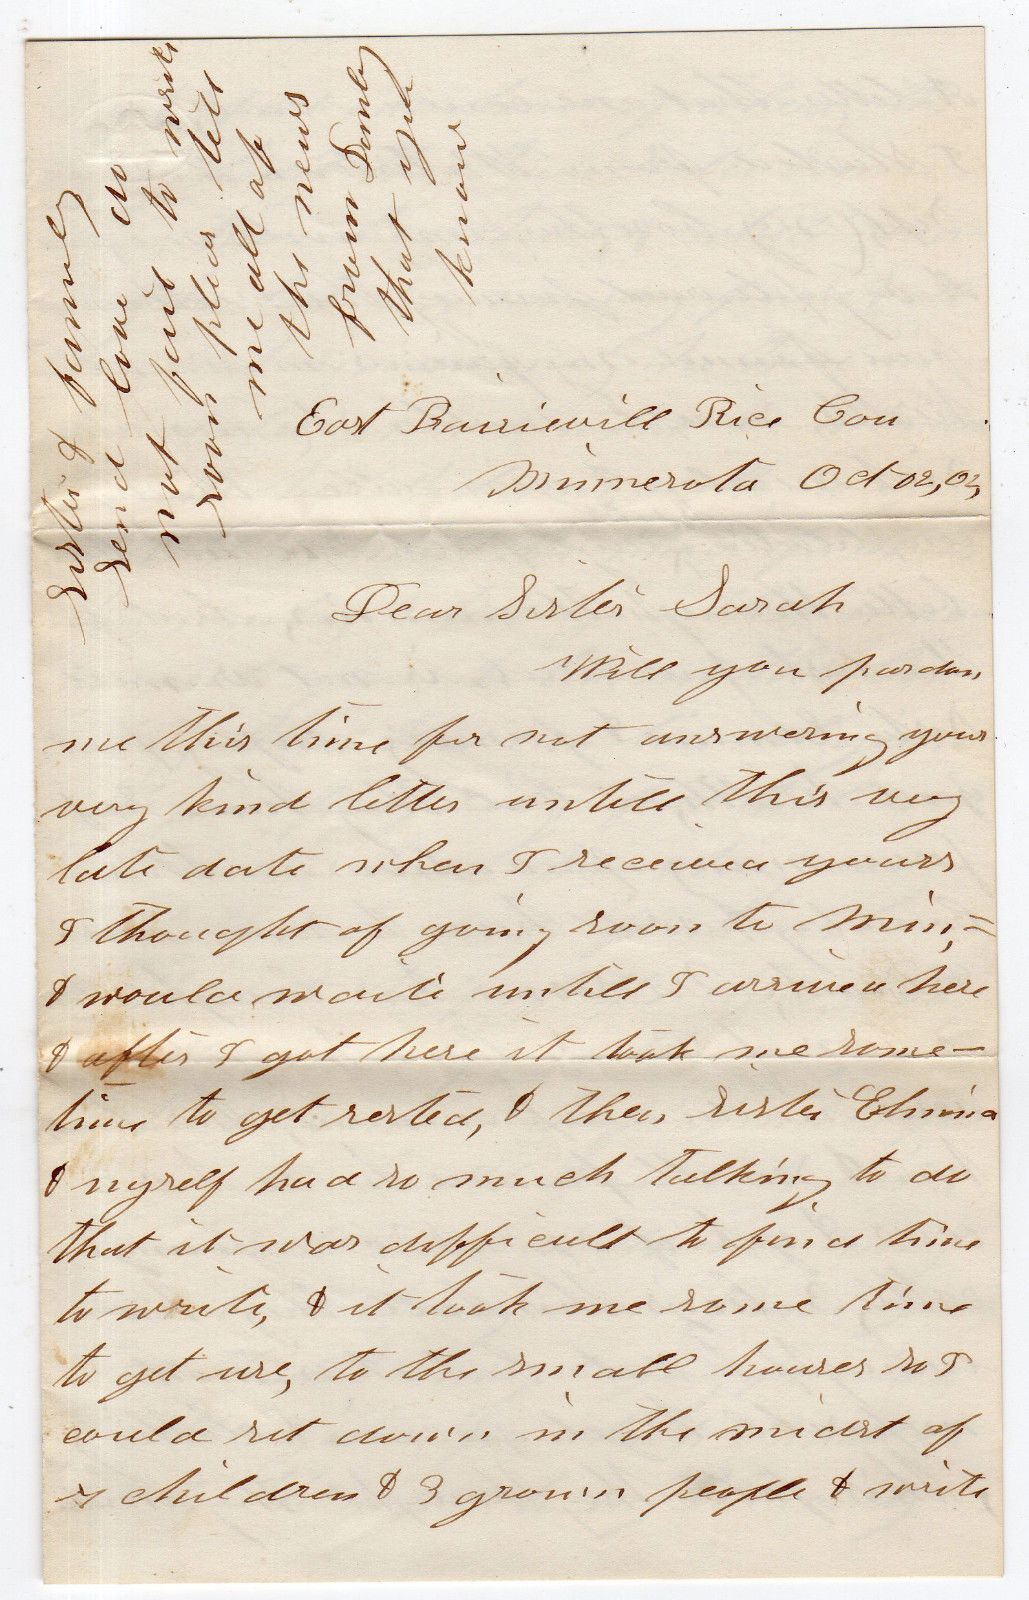 East Prairieville Rice Cou
Minnesota Oct 02, 02,
Dear Sister Sarah
Will you pardon
me this time for not answering your
very kind letter untill this very
late date when I received yours
I thought of going soon to Min,=
& would waite untill I arrived here
& after I got here it took me some=
time to get rested, & then Sister Elmina
& myself had so much talking to do
that it was difficult to find time
to write, & it took me some time
to get use, to the small houses so I
could set down in the midst of
children & 3 grown people & write
Sister & family
Send love do
not fail to write
soon pleas tell
me all of
the news
from Danby
that you
know